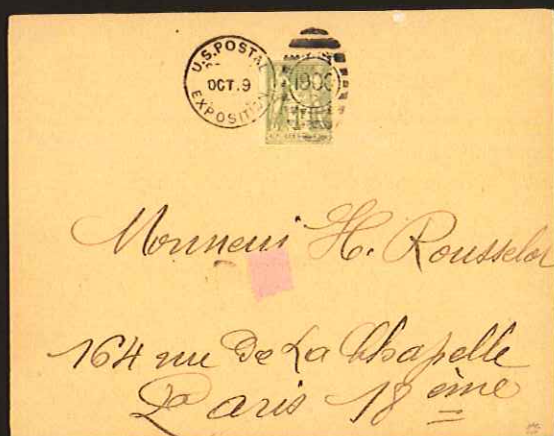 U.S. POSTAL
OCT. 9
EXPOSITION
1900
Monsieur H. Rousselot
164 rue De La Chapelle
Paris 18 ème